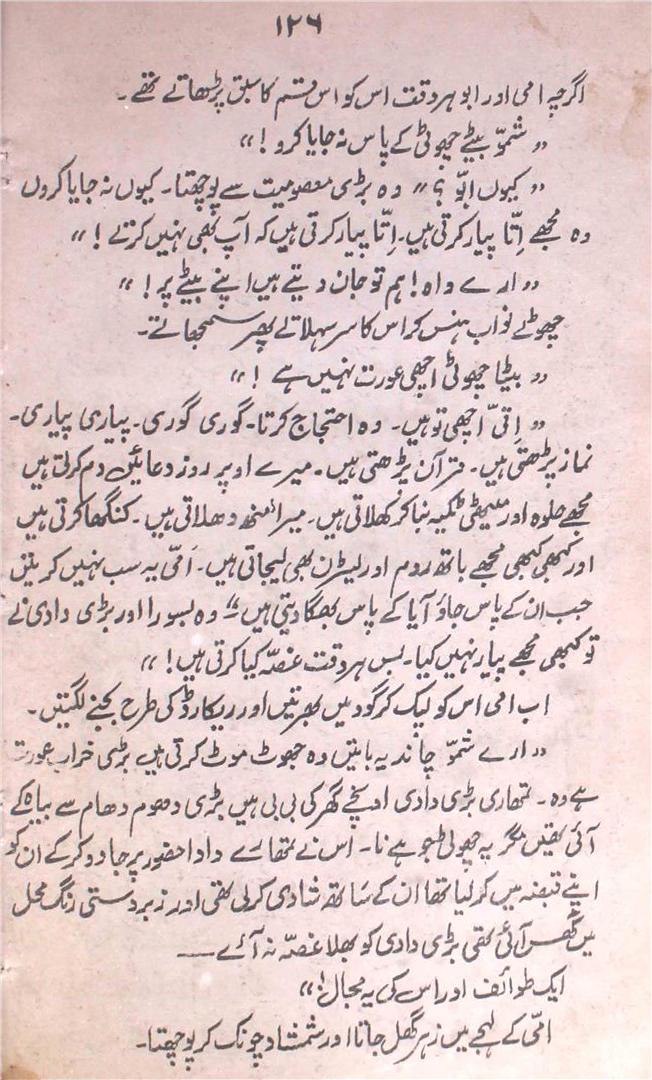 ۱۲۶
اگرچہ امی اور ابو ہر وقت اس کو اس قسم کا سبق پڑھاتے تھے۔
” شموّ بیٹے چھوٹی کے پاس نہ جایا کرو !“
” کیوں ابوّ ؟“ وہ بڑی معصومیت سے پوچھتا۔ کیوں نہ جایا کروں
وہ مجھے اِتّا پیار کرتی ہیں۔ اِتّا پیار کرتی ہیں کہ آپ بھی نہیں کرتے !“
” ارے واہ ! ہم تو جان دیتے ہیں اپنے بیٹے پر !“
چھوٹے نواب ہنس کر اس کا سر سہلاتے پھر سمجھاتے۔
” بیٹا چھوٹی اچھی عورت نہیں ہے !“
” اِتّی اچھی تو ہیں۔ وہ احتجاج کرتا۔ گوری گوری۔ پیاری پیاری۔
نماز پڑھتی ہیں۔ قرآن پڑھتی ہیں۔ میرے اوپر روز دعائیں دم کرتی ہیں
مجھے حلوہ اور میٹھی ٹکیہ بنا کر کھلاتی ہیں۔ میرا منھ دھلاتی ہیں۔ کنگھا کرتی ہیں
اور کبھی کبھی مجھے باتھ روم اور لیٹرن بھی لیجاتی ہیں۔ اَمّی یہ سب نہیں کرتیں
جب ان کے پاس جاؤ آیا کے پاس بھگا دیتی ہیں“ وہ بسورا اور بڑی دادی نے
تو کبھی مجھے پیار نہیں کیا۔ بس ہر وقت غصّہ کیا کرتی ہیں !“
اب امی اس کو لپک کر گود میں بھرتیں اور ریکارڈ کی طرح بجنے لگتیں۔
” ارے شموّ چاند یہ باتیں وہ جھوٹ موٹ کرتی ہیں بڑی خراب عورت
ہے وہ۔ تمھاری بڑی دادی اونچے گھر کی بی بی ہیں بڑی دھوم دھام سے بیاہ کے
آئی تھیں مگر یہ چھوٹی ہے نا۔ اس نے تمھارے دادا حضور پر جادو کر کے ان کو
اپنے قبضہ میں کر لیا تھا ان کے ساتھ شادی کر لی تھی اور زبردستی رنگ محل
میں گھس آئی تھی بڑی دادی کو بھلا غصّہ نہ آئے ——
ایک طوائف اور اس کی یہ مجال !“
امّی کے لہجے میں زہر گھل جاتا اور شمشاد چونک کر پوچھتا۔